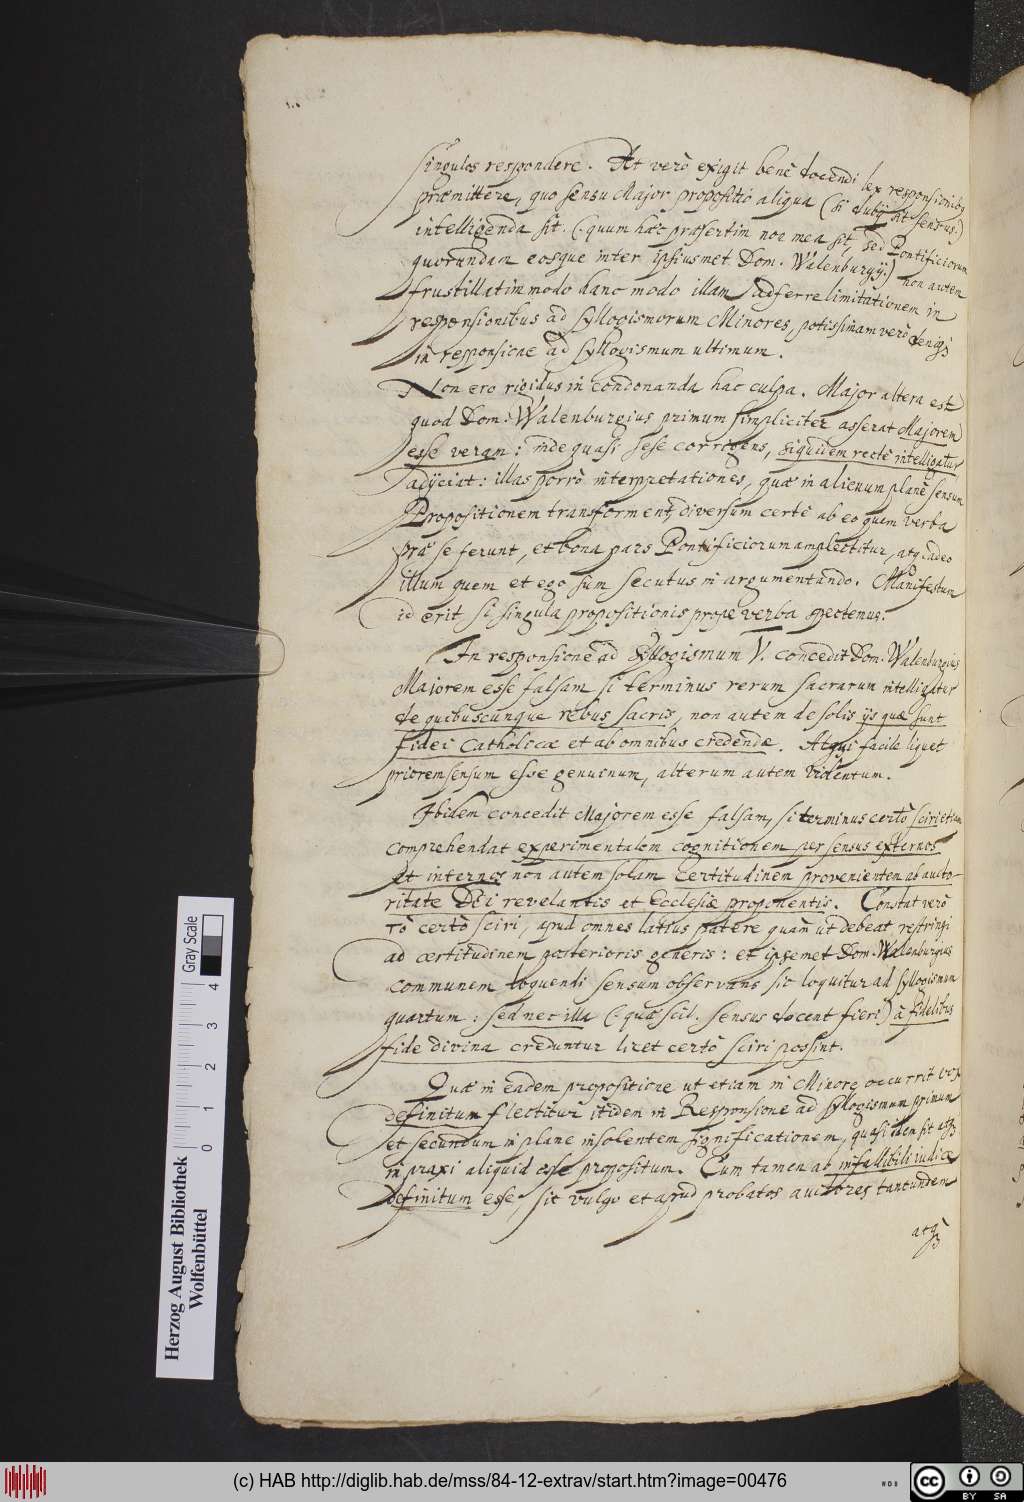 singulos respondere. At verò exigit benè docendi lex responsionibus
præmittere, quo sensu Major propositio aliqua (si dubij sit sensus.)
intelligenda sit. (quum hæc præsertim non mea sit, sed Pontificiorum
quorundam eosque inter ipsiusmet Dom. Walenburgij.) non autem
frustillatim modo hanc modo illam adferre limitationem in
responsionibus ad syllogismorum Minores, potissimam verò deniqꝫ
in responsione ad syllogismum ultimum.
Non ero rigidus in condonanda hac culpa. Major altera est
quod Dom. Walenburgius primum simpliciter asserat Majorem
esse veram: inde quasi sese corrigens, siquidem rectè intelligatur
adijciat: illas porrò interpretationes, quæ in alienum planè sensum
Propositionem transforment, diversum certè ab eo quem verba
præ se ferunt, et bona pars Pontificiorum amplectitur, atqꝫ adeo
illum quem et ego sum secutus in argumentando. Manifestum
id erit si singula propositionis prope verba spectemus.
In responsione ad Syllogismum V. concedit Dom. Walenburgius
Majorem esse falsam si terminus rerum sacrarum intelligatur
de quibuscunque rebus sacris, non autem de solis ijs quæ sunt
fidei Catholicæ et ab omnibus credendæ. Atqui facile liquet
priorem sensum esse genuinum, alterum autem
Ibidem concedit Majorem esse falsam, si terminus certò sciri etiam
comprehendat experimentalem cognitionem per sensus externos
et internos non autem solam certitudinem provenientem ab aucto-
ritate Dei revelantis et Ecclesiæ proponentis. Constat verò
τὸ certò sciri, apud omnes latius patere quàm ut debeat restringi
ad certitudinem posterioris generis: et ipsemet Dom. Walenburgius
communem loquendi sensum observans sic loquitur ad syllogismum
quartum: sed nec illa (quæ scil. sensus docent fieri) à fidelibus
fide divina creduntur licet certò sciri possint.
Quæ in eadem propositione ut etiam in Minore occurrit vox
definitum flectitur itidem in Responsione ad syllogismum primum
et secundum in plane insolentem significationem, quasi idem sit atqꝫ
in praxi aliquid esse propositum. Cum tamen ab infallibili iudice
definitum esse, sit vulgo et apud probatos auctores tantundem
atqꝫ
Gray Scale
0 1 2 3 4
Herzog August Bibliothek
Wolfenbüttel
(c) HAB http://diglib.hab.de/mss/84-12-extrav/start.htm?image=00476
WDB
cc BY SA